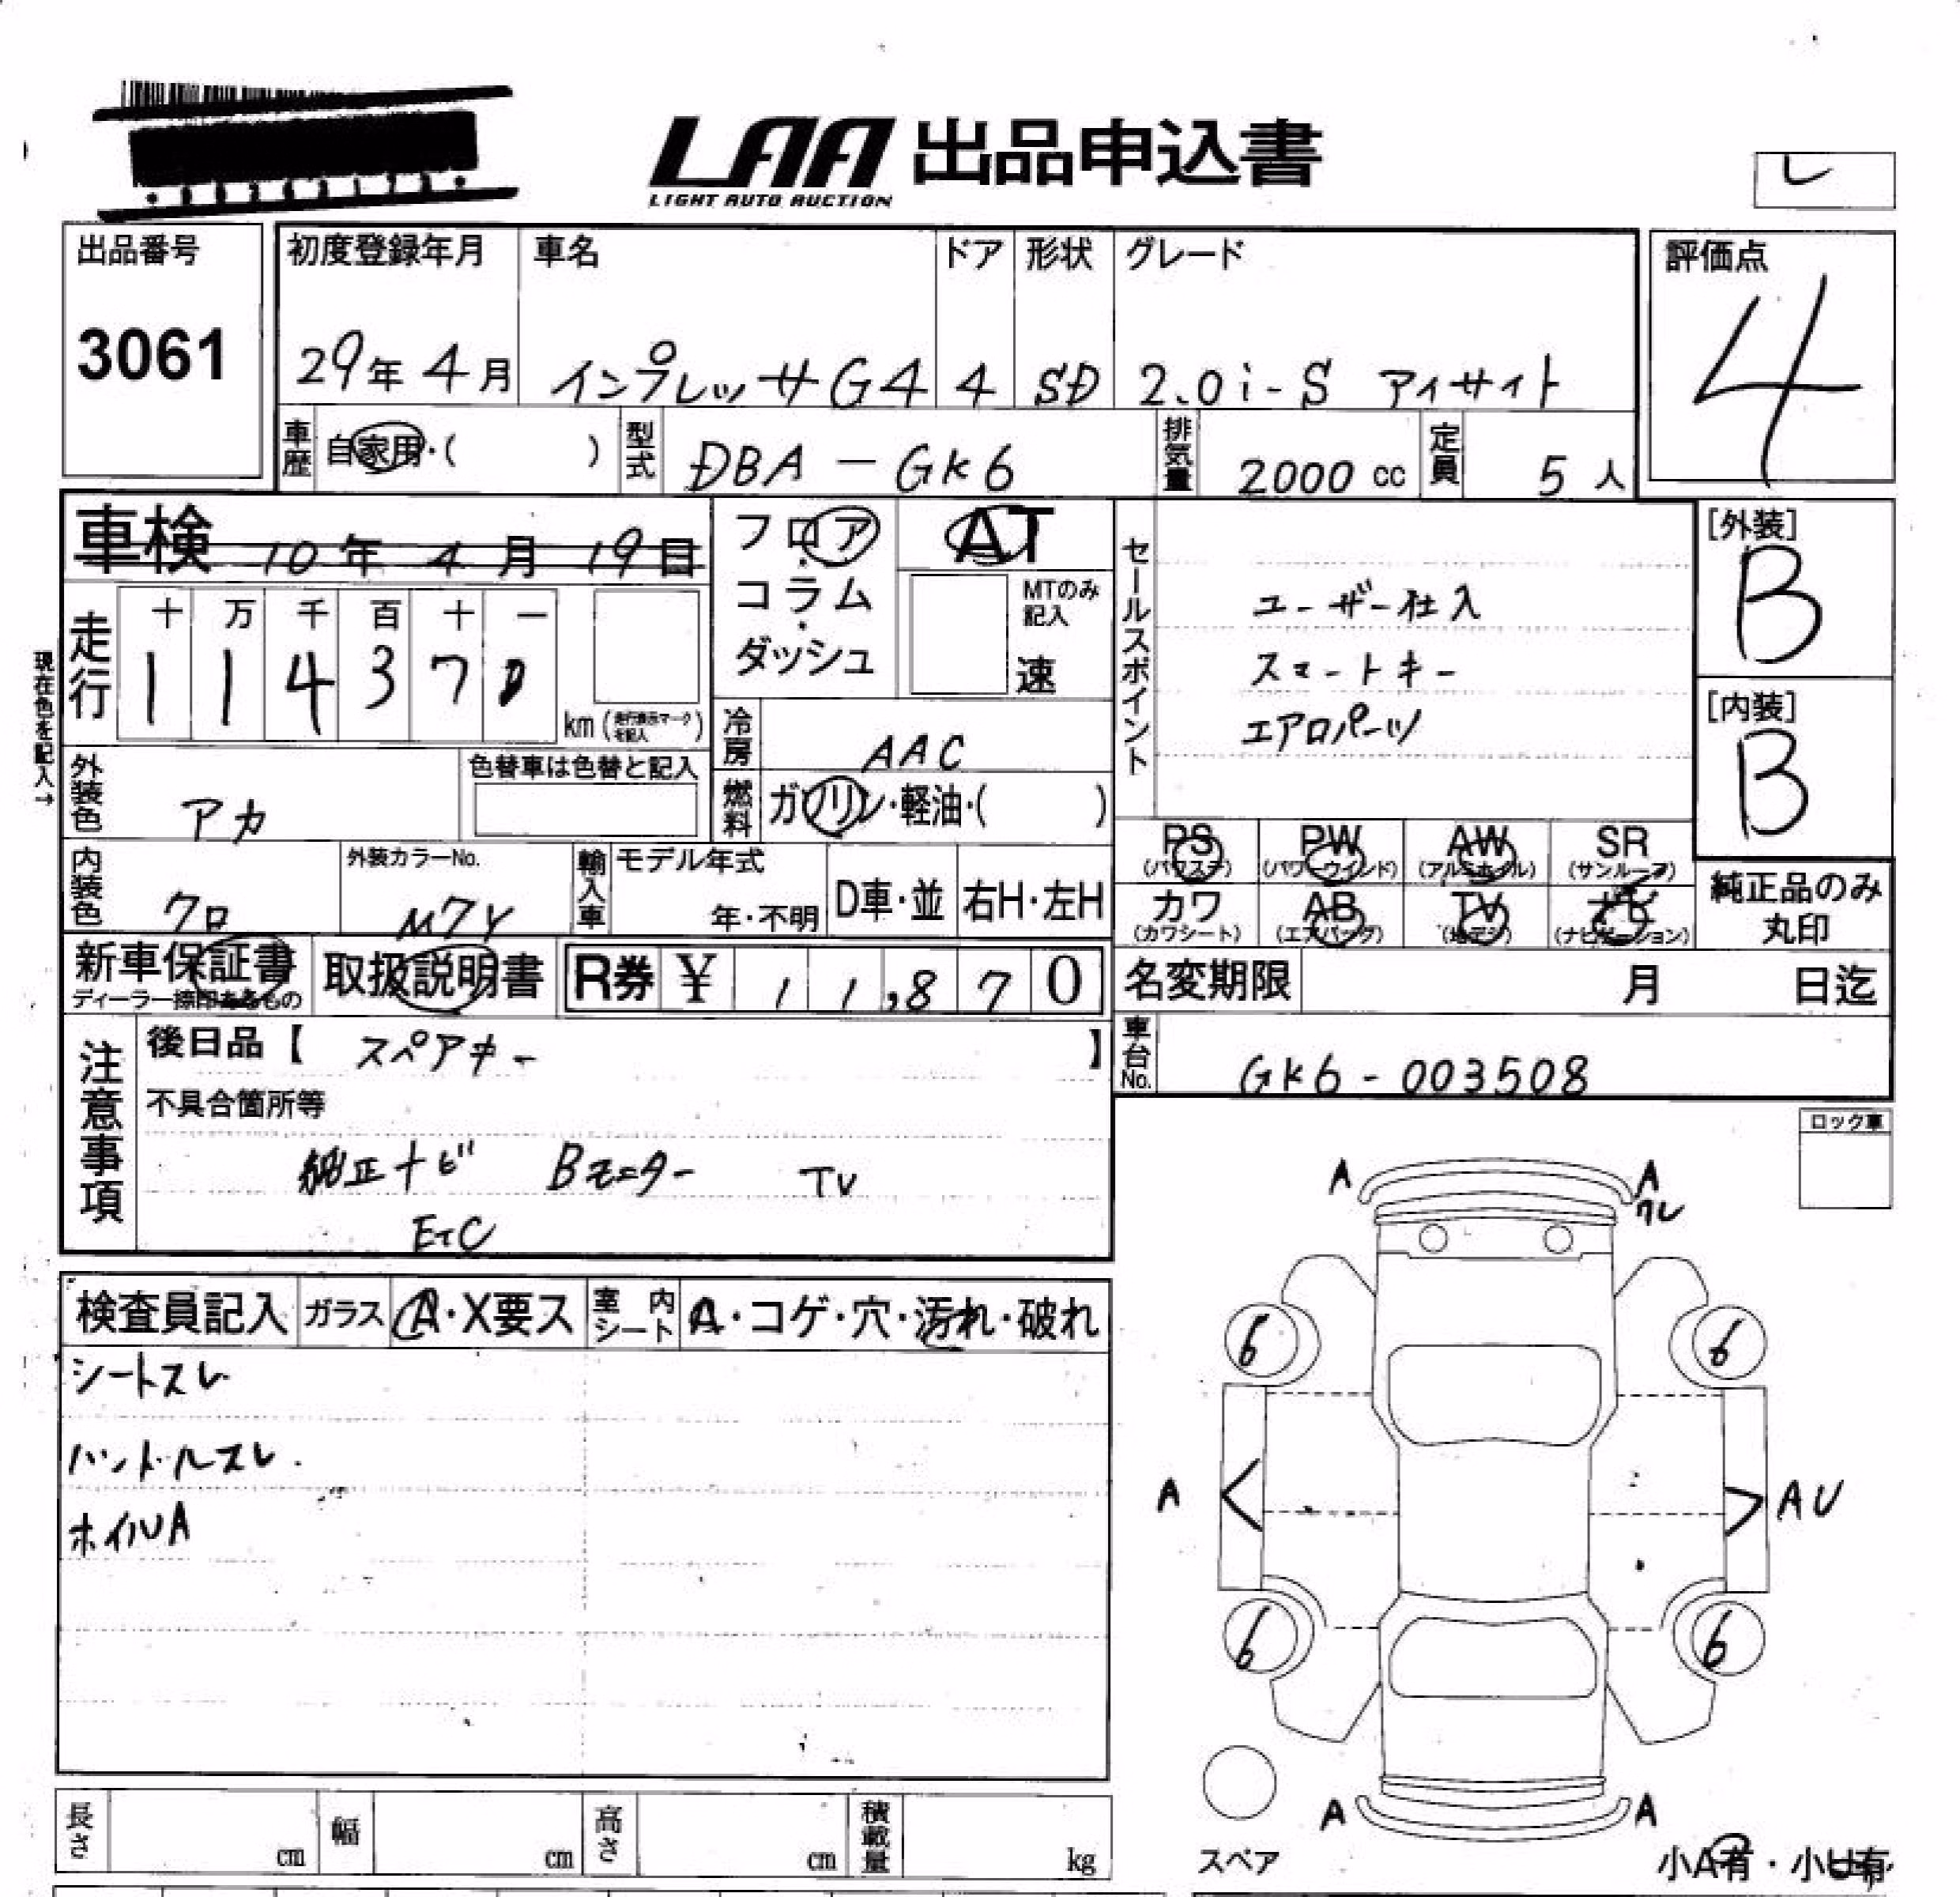 LAA 出品申込書
LIGHT AUTO AUCTION
レ
出品番号
3061
初度登録年月 車名 ドア 形状 グレード
29年 4月 インプレッサG4 4 SD 2.0i-S アイサイト
評価点
4
車歴 自家用・( ) 型式 DBA-GK6 排気量 2000cc 定員 5人
車検 10年 4月 19日
フロア・コラム・ダッシュ
AT
MTのみ記入
速
現在色を記入→
走行
十 万 千 百 十 一
1 1 4 3 7 0
km (走行表示マークを記入)
冷房 AAC
外装色 アカ
色替車は色替と記入
燃料 ガソリン・軽油・( )
内装色 クロ
外装カラーNo. M7Y
輸入車 モデル年式 年・不明 D車・並 右H・左H
セールスポイント
ユーザー仕入
スマートキー
エアロパーツ
[外装]
B
[内装]
B
PS (パワステ) PW (パワーウインド) AW (アルミホイル) SR (サンルーフ)
カワ (カワシート) AB (エアバッグ) TV (地デジ) ナビ (ナビゲーション)
純正品のみ丸印
新車保証書
ディーラー捺印あるもの
取扱説明書
R券 ¥ 11,870
名変期限 月 日迄
車台No. GK6-003508
注意事項
後日品【 スペアキー 】
不具合箇所等
純正ナビ Bモニター TV
ETC
ロック車
検査員記入 ガラス A・X要ス 室内シート A・コゲ・穴・汚れ・破れ
シートスレ
ハンドルスレ.
ホイルA
A A
ワレ
6 6
A AU
6 6
A A
スペア
小A有・小U有
長さ cm 幅 cm 高さ cm 積載量 kg